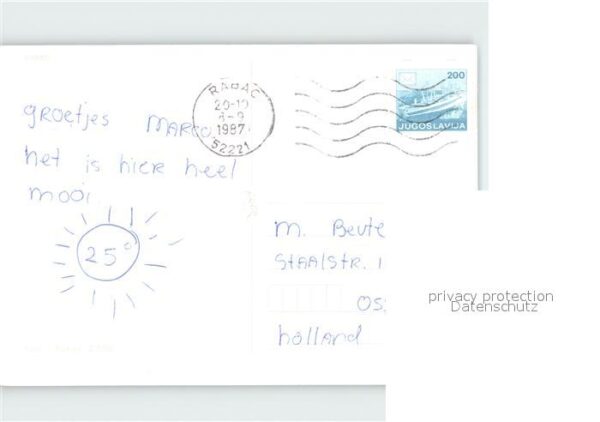 groetjes MARCO
het is hier heel
mooi
25°
RABAC
20-10
1987
52221
200
JUGOSLAVIJA
M. Beute
STAAlSTR. 1
Os
holland
privacy protection
Datenschutz